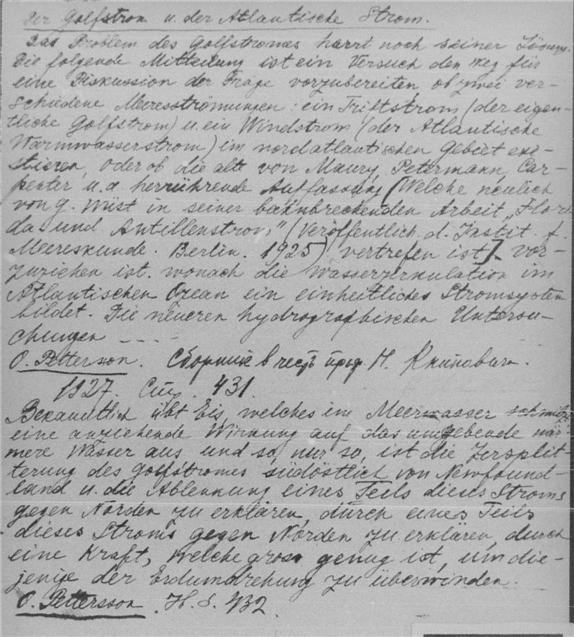 Der Golfstrom u. der Atlantische Strom.
Das Problem des Golfstromes harrt noch seiner Lösung.
Die folgende Mitteilung ist ein Versuch den Weg für
eine Diskussion der Frage vorzubereiten ob zwei ver-
schiedene Meeresströmungen: ein Triftstrom (der eigen-
tliche Golfstrom) u. ein Windstrom (der Atlantische
Warmwasserstrom) im nordatlantischen Gebiet exi-
stieren, oder ob die alte von Maury, Petermann, Car-
penter u. a. herrührende Auffassung (Welche neulich
von G. Wüst in seiner bahnbrechenden Arbeit „Flori
da und Antillenstrom" (Veröffentlich. d. Instit. f.
Meereskunde. Berlin. 1925) vertreten ist) vor-
zuziehen ist, wonach die Wasserzirkulation im
Atlantischen Ozean ein einheitliches Stromsystem
bildet. Die neueren hydrographischen Untersu-
chungen - - - -
O. Petterson. Сборник в честь проф. Н. Книповича.
1927. Стр. 431.
Bekanntlich übt Eis, welches im Meerwasser schmilzt
eine anziehende Wirkung auf das umgebende wär-
mere Wasser aus und so, nur so, ist die Zersplit-
terung des Golfstromes südöstlich von Newfound-
land u. die Ablenkung eines Teils dieses Stroms
gegen Norden zu erklären, durch eines Teils
dieses Stroms gegen Norden zu erklären, durch
eine Kraft, welche gross genug ist, um die-
jenige der Erdumdrehung zu überwinden.
O. Pettersson. H. S. 432.